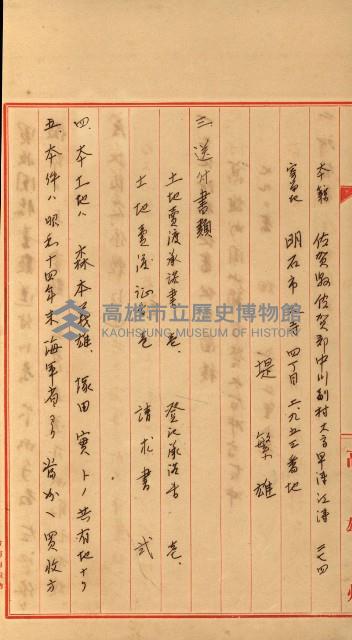 本籍 佐賀縣佐賀郡中川副村大字早津江津 三七四
寄留地 明石市 四丁目二九五三番地
堤 繁雄
三、送付書類
土地賣渡承諾書 壱、 登記承諾書 壱、
土地賣渡証 壱 請求書 弍
四、本土地ハ 森本 雄、塚田實トノ共有地ナリ
五、本件ハ昭和十四年末海軍省ヨリ 買收方
高雄州
高雄市立歷史博物館
KAOHSIUNG MUSEUM OF HISTORY